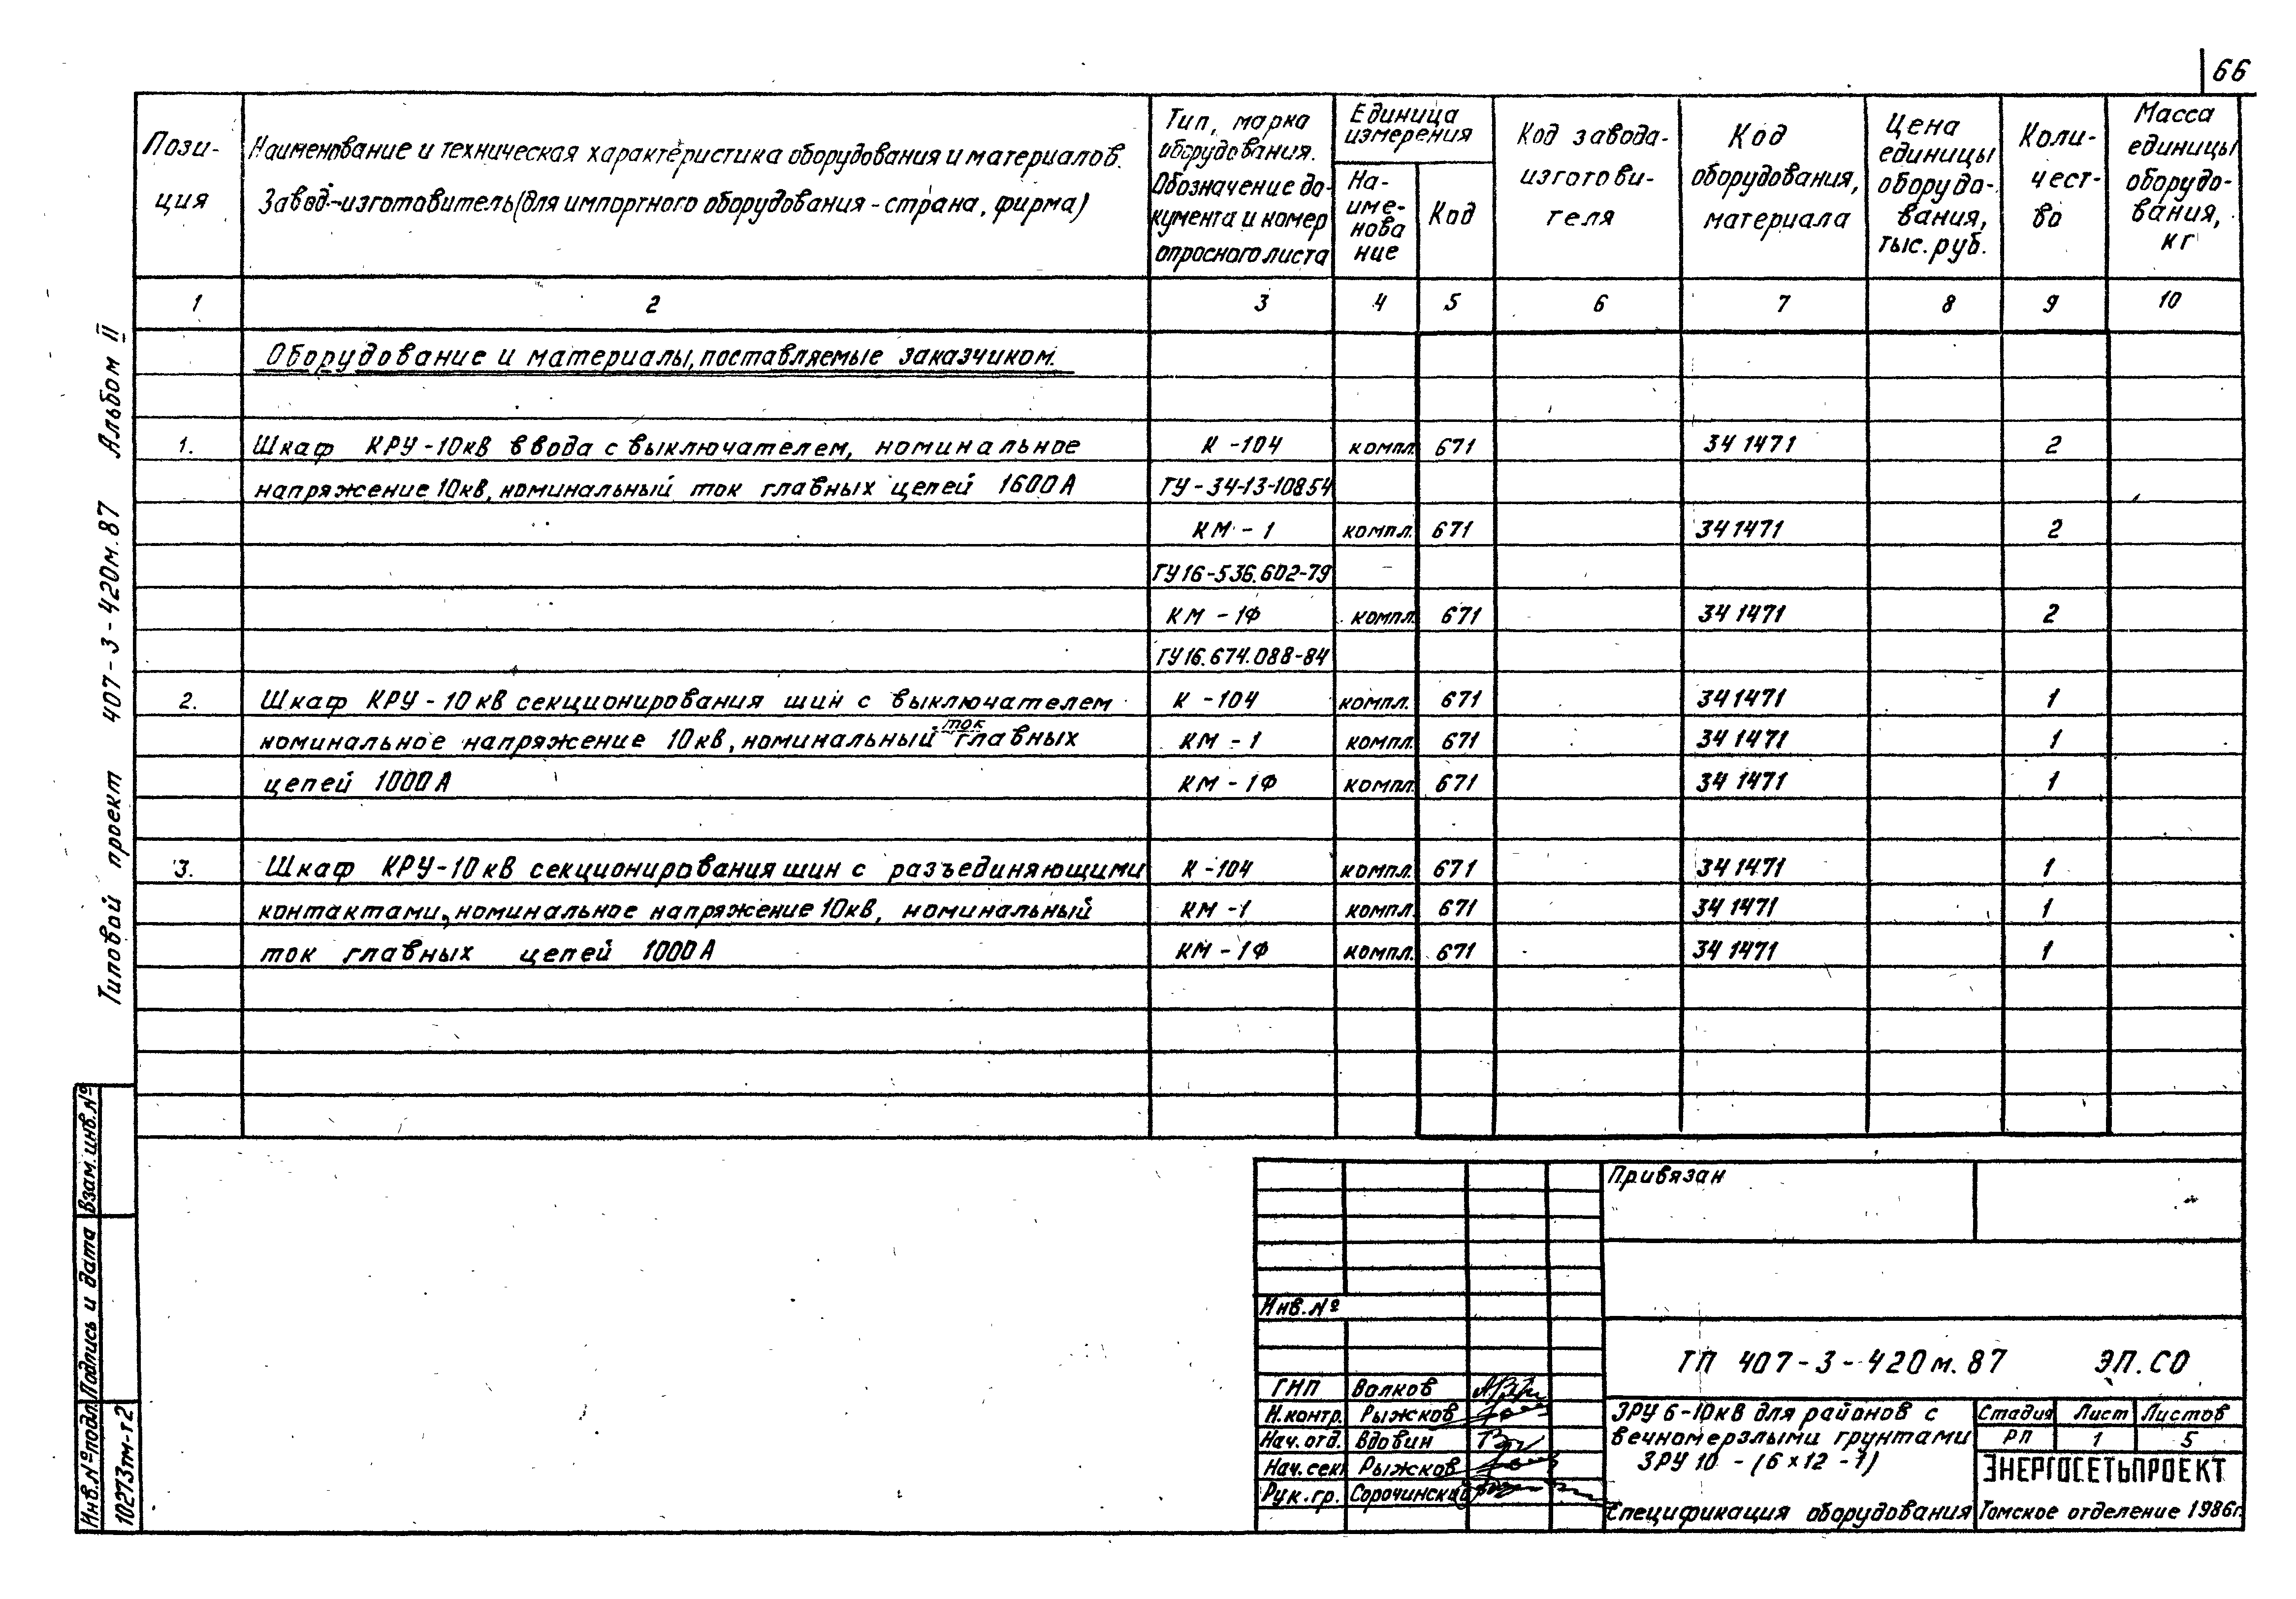 66
Пози-
ция
Наименование и техническая характеристика оборудования и материалов.
Завод-изготовитель (для импортного оборудования - страна, фирма)
Тип, марка
оборудования.
Обозначение до-
кумента и номер
опросного листа
Единица
измерения
На-
име-
нова
ние
Код
Код завода-
изготови-
теля
Код
оборудования,
материала
Цена
единицы
оборудо-
вания,
тыс. руб.
Коли-
чест-
во
Масса
единицы
оборудо-
вания,
кг
1 2 3 4 5 6 7 8 9 10
Оборудование и материалы, поставляемые заказчиком.
1. Шкаф КРУ-10кВ ввода с выключателем, номинальное К-104 компл. 671 34 1471 2
напряжение 10кВ, номинальный ток главных цепей 1600А ТУ-34-13-10854
КМ-1 компл. 671 34 1471 2
ТУ16-536.602-79
КМ-1Ф компл. 671 34 1471 2
ТУ16.674.088-84
2. Шкаф КРУ-10кВ секционирования шин с выключателем К-104 компл. 671 34 1471 1
номинальное напряжение 10кВ, номинальный ток главных КМ-1 компл. 671 34 1471 1
цепей 1000А КМ-1Ф компл. 671 34 1471 1
3. Шкаф КРУ-10кВ секционирования шин с разъединяющими К-104 компл. 671 34 1471 1
контактами, номинальное напряжение 10кВ, номинальный КМ-1 компл. 671 34 1471 1
ток главных цепей 1000А КМ-1Ф компл. 671 34 1471 1
Типовой проект 407-3-420м.87 Альбом II
Взам.инв.№
Подпись и дата
Инв.№подл.
10273тм-т2
Привязан
Инв.№
ТП 407-3-420м.87 ЭП.СО
ГИП Валков
Н.контр. Рыжков
Нач.отд. Вдовин
Нач.сек. Рыжков
Рук.гр. Сорочинский
ЗРУ 6-10кВ для районов с
вечномерзлыми грунтами
ЗРУ 10 - (6×12-1)
Стадия Лист Листов
РП 1 5
Спецификация оборудования
ЭНЕРГОСЕТЬПРОЕКТ
Томское отделение 1986г.